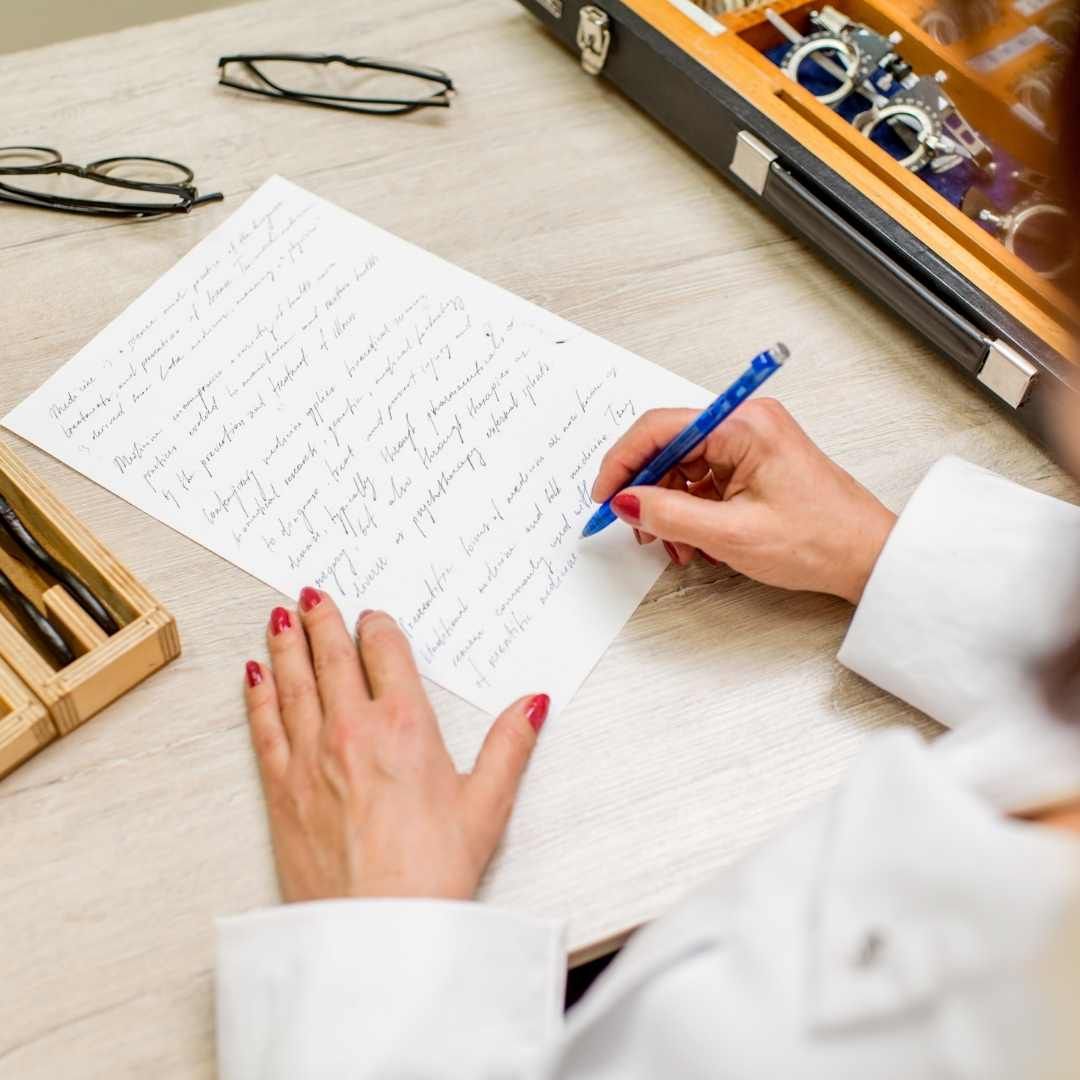 Medicine is a science and practice of the diagnosis
treatment, and prevention of disease. The word medicine
is derived from Latin medicina, meaning a physician
Medicine encompasses a variety of health care
practices evolved to maintain and restore health
by the prevention and treatment of illness
Contemporary medicine applies biomedical sciences
biomedical research, genetics, and medical technology
to diagnose, treat, and prevent injury and
disease, typically through pharmaceuticals or
surgery, but also through therapies as
diverse as psychotherapy external splints
Prescientific forms of medicine are now known as
traditional medicine and folk medicine. They
remain commonly used with
of scientific medicine